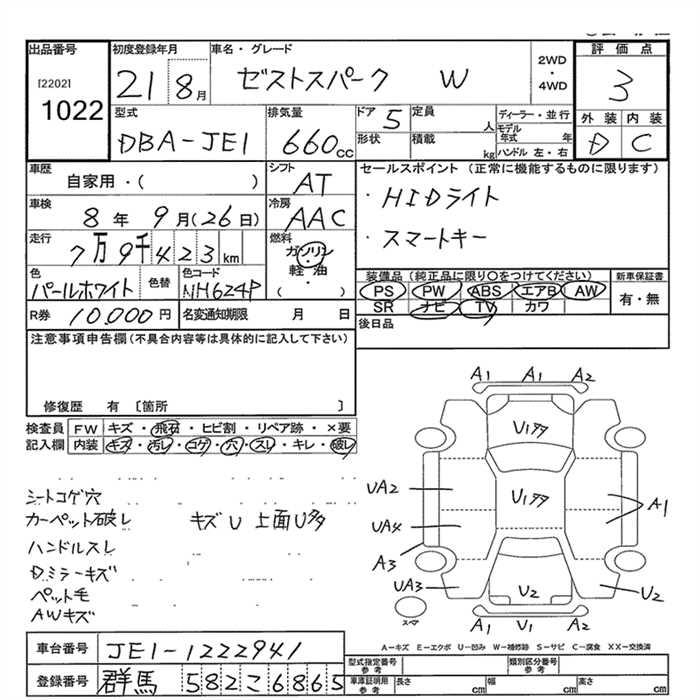 出品番号
[2202]
1022
初度登録年月
21 8月
車名・グレード
ゼストスパーク W
2WD
・
4WD
評価点
3
外装 内装
D C
型式
DBA-JE1
排気量
660cc
ドア 5
形状
定員
人
積載
kg
ディーラー・並行
モデル
年式 年
ハンドル 左・右
車歴
自家用・( )
シフト
AT
車検
8年 9月(26日)
冷房
AAC
走行
7万9千423km
燃料
ガソリン
・
軽・油
( ・ )
色
パールホワイト
色替
色コード
NH624P
R券 10,000円
名変通知期限 月 日
セールスポイント (正常に機能するものに限ります)
・HIDライト
・スマートキー
装備品 (純正品に限り○をつけてください)
PS PW ABS エアB AW
SR ナビ TV カワ
新車保証書
有・無
後日品
注意事項申告欄(不具合内容等は具体的に記入して下さい)
修復歴 有 〔箇所 〕
検査員
記入欄
FW キズ・飛石・ヒビ割・リペア跡・×要
内装 キズ・汚レ・コゲ・穴・スレ・キレ・破レ
シートコゲ穴
カーペット破レ
ハンドルスレ
Dミラーキズ
ペット毛
AWキズ
キズU 上面U多
A1 A1 A2
U1多
UA2
U1多
A1
UA4
A3
UA3
U2
U2
A1 U1 A2
スペア
A-キズ E-エクボ U-凹み W-補修跡 S-サビ C-腐食 XX-交換済
車台番号 JE1-1222941
登録番号 群馬 582 に 6865
型式指定番号
参考
類別区分番号
参考
車庫証明用
参考
長さ cm
幅 cm
高さ cm